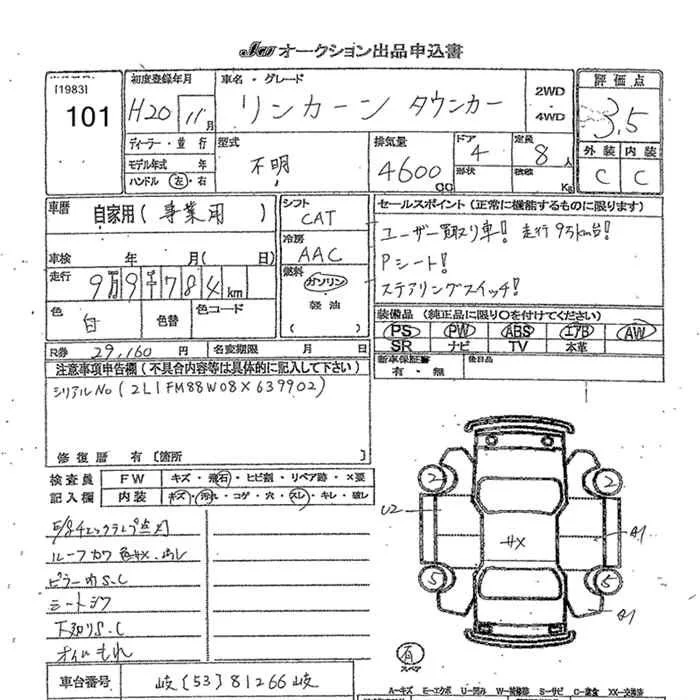 オークション出品申込書
[1983]
101
初度登録年月
H20 11月
車名・グレード
リンカーン タウンカー
2WD
4WD
評価点
3.5
外装 内装
C C
ディーラー・並行
モデル年式 年
ハンドル 左・右
型式
不明
排気量
4600CC
ドア
4
形状
定員
8人
積載
Kg
車歴
自家用(事業用)
車検 年 月( 日)
走行
9万9千784km
色
白
色替
色コード
シフト
CAT
冷房
AAC
燃料
ガソリン
軽油
( )
セールスポイント(正常に機能するものに限ります)
ユーザー買取り車! 走行9万km台!
Pシート!
ステアリングスイッチ!
装備品 (純正品に限り○を付けてください)
PS PW ABS エアB AW
SR ナビ TV 本革
新車保証書
有・無
後日品
R券 29,160円 名変期限 月 日
注意事項申告欄(不具合内容等は具体的に記入して下さい)
シリアルNo(2L1FM88W08X639902)
修復歴 有〔箇所 〕
検査員
記入欄
FW キズ・飛石・ヒビ割・リペア跡・×要
内装 キズ・汚れ・コゲ・穴・スレ・キレ・破レ
E/gチェックランプ点灯
ピラー内S.C
下廻りS.C
オイルもれ
2 2
U2
A1
サX
5 5
A1
有
スペア
車台番号 岐[53]81266岐
A-キズ E-エクボ U-凹み